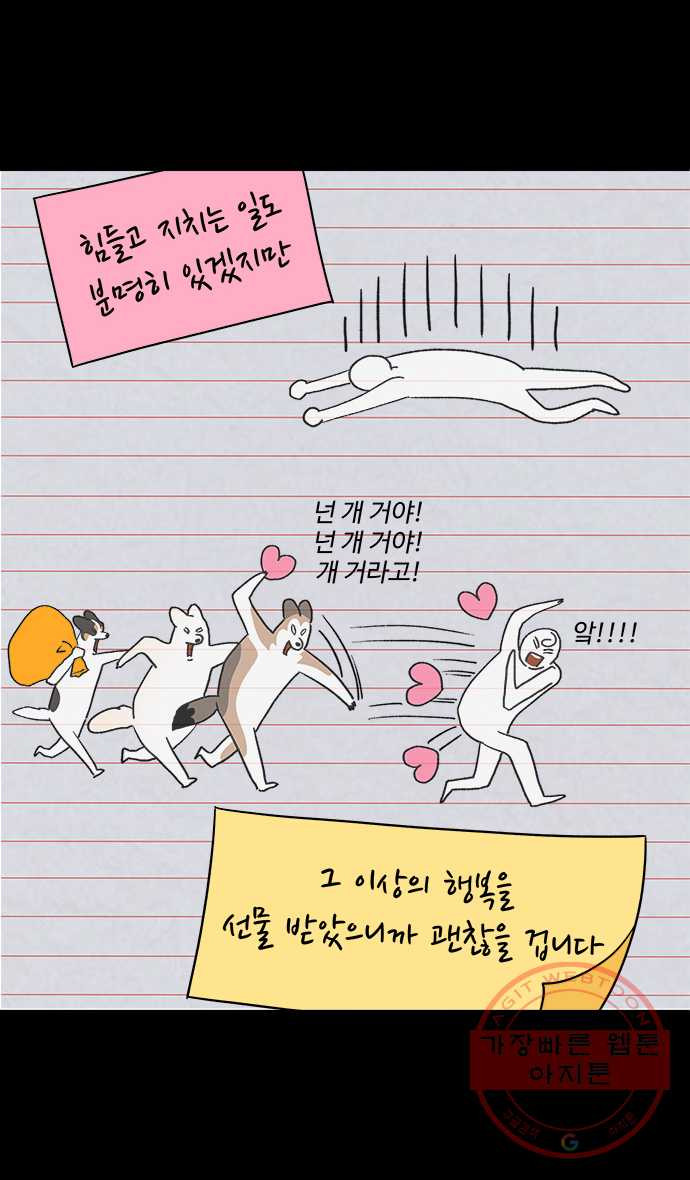 힘들고 지치는 일도
분명히 있겠지만
넌 개 거야!
넌 개 거야!
개 거라고!
앜!!!!
그 이상의 행복을
선물 받았으니까 괜찮을 겁니다
AGIT WEBTOON
가장빠른 웹툰
아지툰